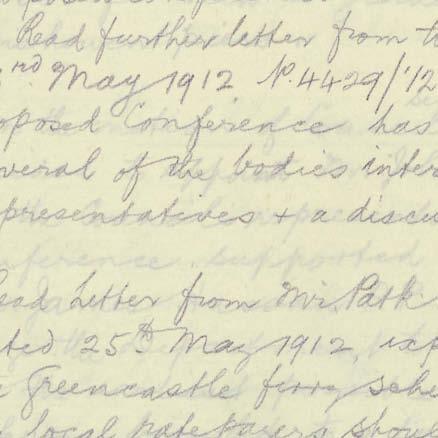 Read further letter from t
rd May 1912 N. 4429/'12
oposed Conference has
veral of the bodies inter
presentatives + a discu
ead Letter from Mr. Patk
ted 25th May 1912, exp
Greencastle ferry sche
local ratepayers shoul